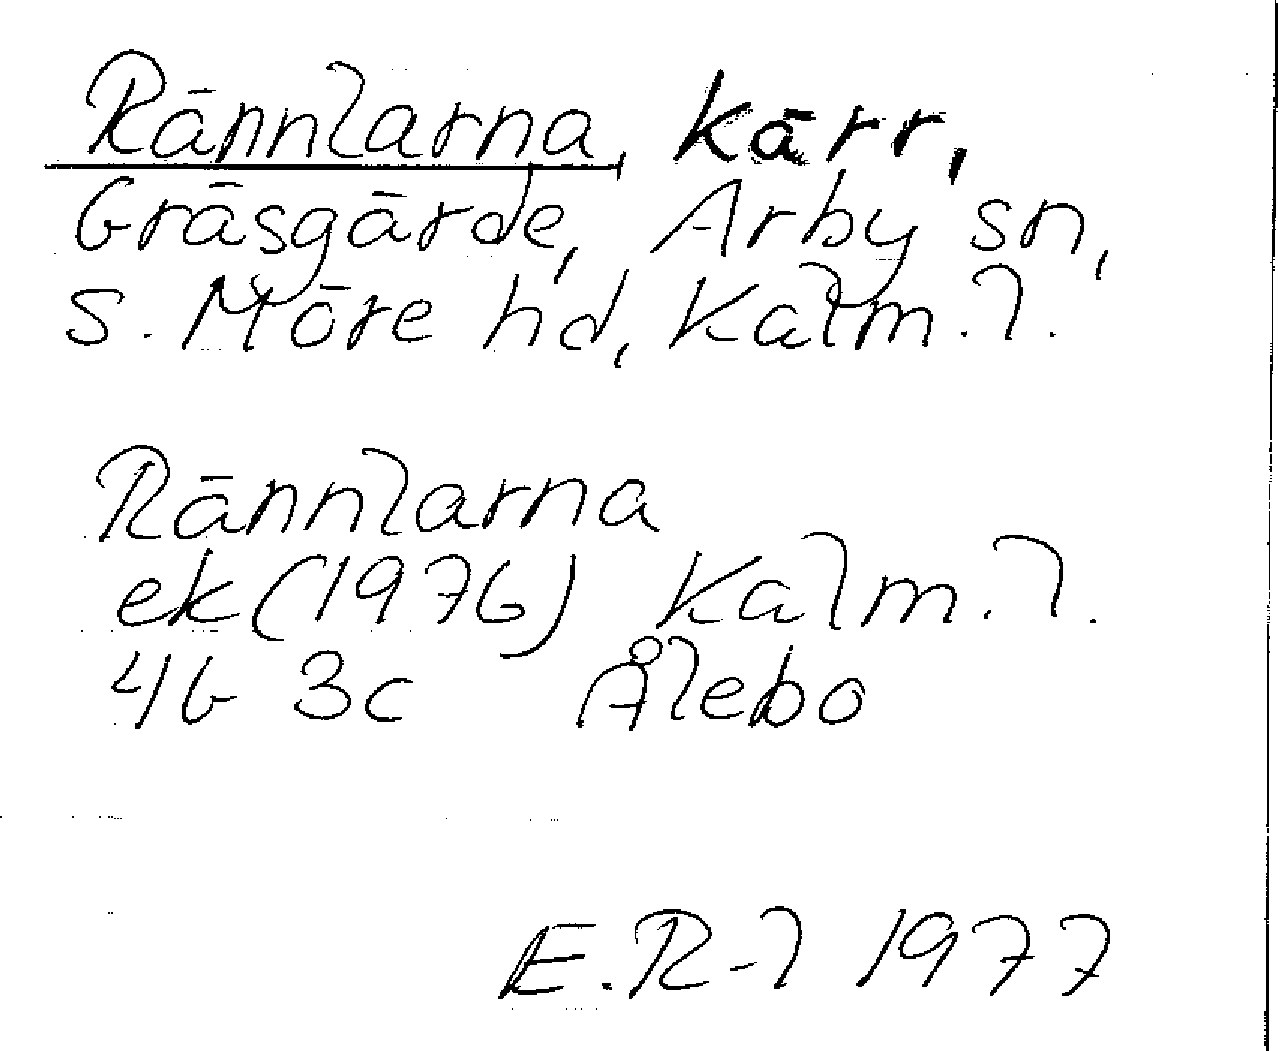 Rännlarna, kärr,
Gräsgärde, Arby sn,
S. Möre hd, Kalm. l.
Rännlarna
ek (1976) Kalm. l.
4G 3c Ålebo
E. R-l 1977